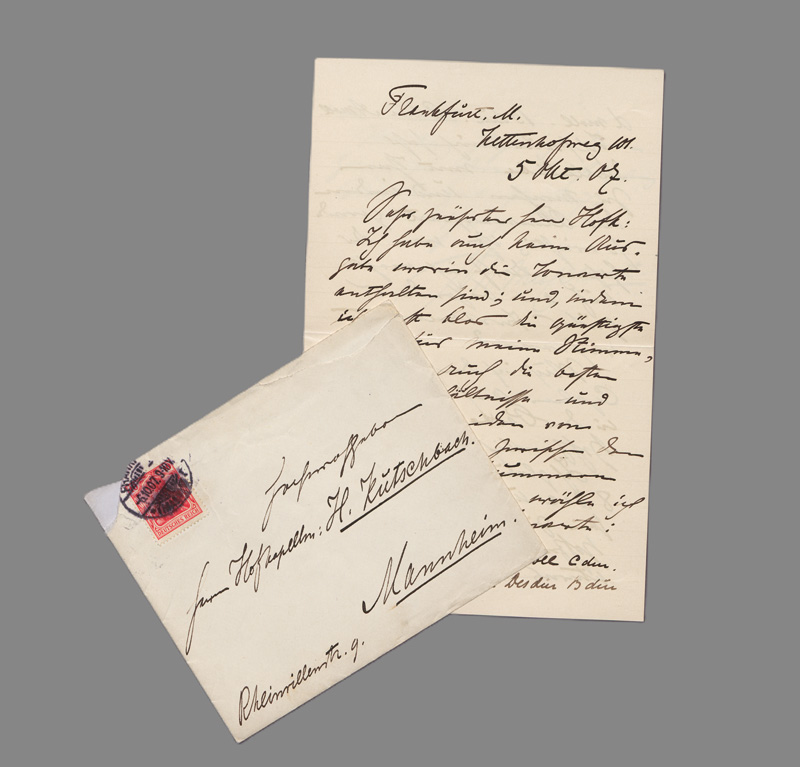 Frankfurt. M.
Kettenhofweg 101.
5 Okt. 07.
Sehr geehrter Herr Hofk:
Ich habe auch keine Aus-
gabe worin die Tonarten
enthalten sind; und, indem
ich blos die günstigste
für meine Stimme,
auch die besten
und
von
zwischen den
Nummern
wähle ich
Cdur.
Desdur B dur
Hochwohlgeboren
Herrn Hofkapellm: H. Kutschbach.
Mannheim.
Rheinvillenstr. 9.
DEUTSCHES REICH